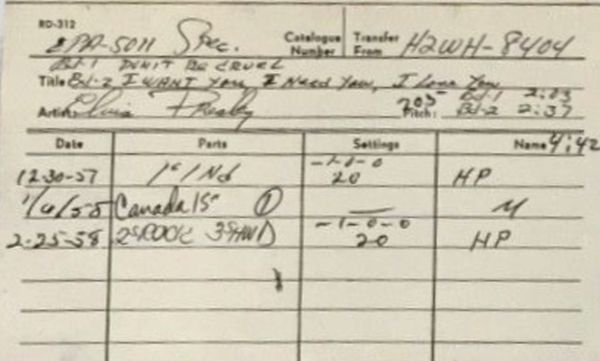 RD-312
EPA-5011 Spec. Catalogue Number Transfer From H2WH-8404
Bd-1 DON'T BE CRUEL
Title Bd-2 I WANT YOU, I NEED YOU, I LOVE YOU
Artist Elvis Presley Pitch: 205 Bd-1 2:03
Bd-2 2:37
Date Parts Settings Name 4:42
12-30-57 1S 1Nd -1-0-0 20 HP
Canada 1S 1 — M
2-25-58 -1-0-0 20 HP